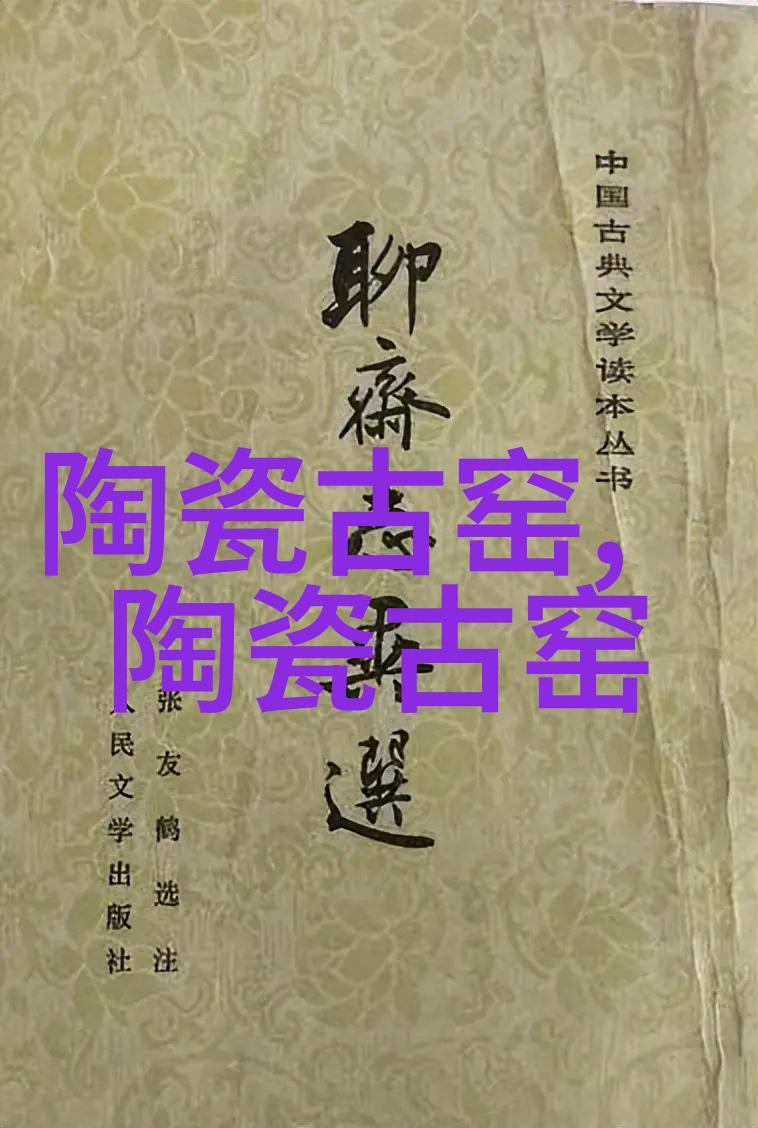 中国古典文学读本丛书
聊齋志異選
陶瓷古窑,
陶瓷古窑
张友鹤选注
人民文学出版社